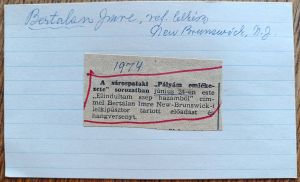 Bertalan Imre, ref. lelkész
New Brunswick, N.J.
1974
A sárospataki „Pályám emléke-
zete" sorozatban június 24-én este
„Elindultam szép hazámból" cím-
mel Bertalan Imre New-Brunswick-i
lelkipásztor tartott előadást és
hangversenyt.